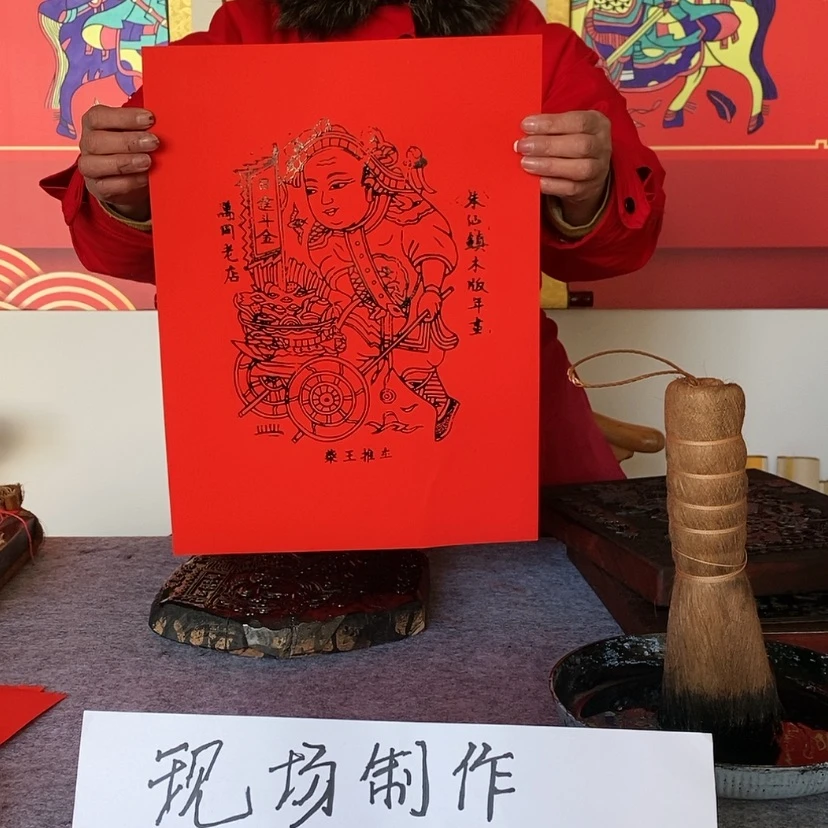 朱仙鎮木版年畫
日進斗金
萬同老店
柴王推车
现场制作